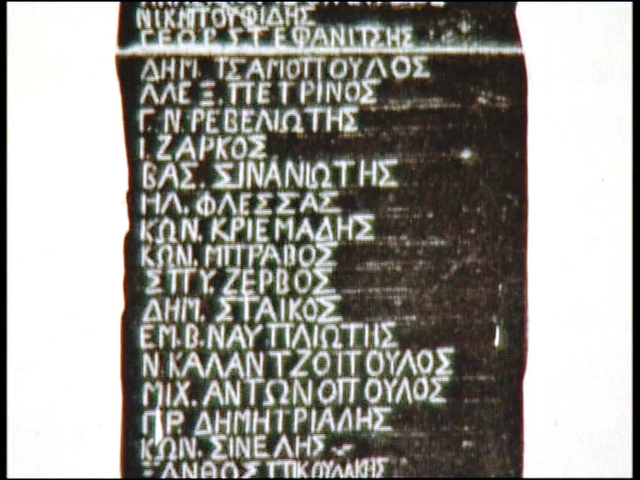 ΓΕΩΡ ΣΤΕΦΑΝΙΤΣΗΣ
ΔΗΜ. ΤΣΑΜΟΠΟΥΛΟΣ
ΑΛΕΞ. ΠΕΤΡΙΝΟΣ
Γ. Ν. ΡΕΒΕΛΙΩΤΗΣ
Ι. ΖΑΡΚΟΣ
ΒΑΣ. ΣΙΝΑΝΙΩΤΗΣ
ΗΛ. ΦΛΕΣΣΑΣ
ΚΩΝ. ΚΡΙΕΜΑΔΗΣ
ΚΩΝ. ΜΠΡΑΒΟΣ
ΣΠΥ. ΖΕΡΒΟΣ
ΔΗΜ. ΣΤΑΙΚΟΣ
ΕΜ. Β. ΝΑΥΠΛΙΩΤΗΣ
Ν. ΚΑΛΑΝΤΖΟΠΟΥΛΟΣ
ΜΙΧ. ΑΝΤΩΝΟΠΟΥΛΟΣ
ΠΡ. ΔΗΜΗΤΡΙΑΔΗΣ
ΚΩΝ. ΣΙΝΕΛΗΣ
ΞΑΝΘΟΣ